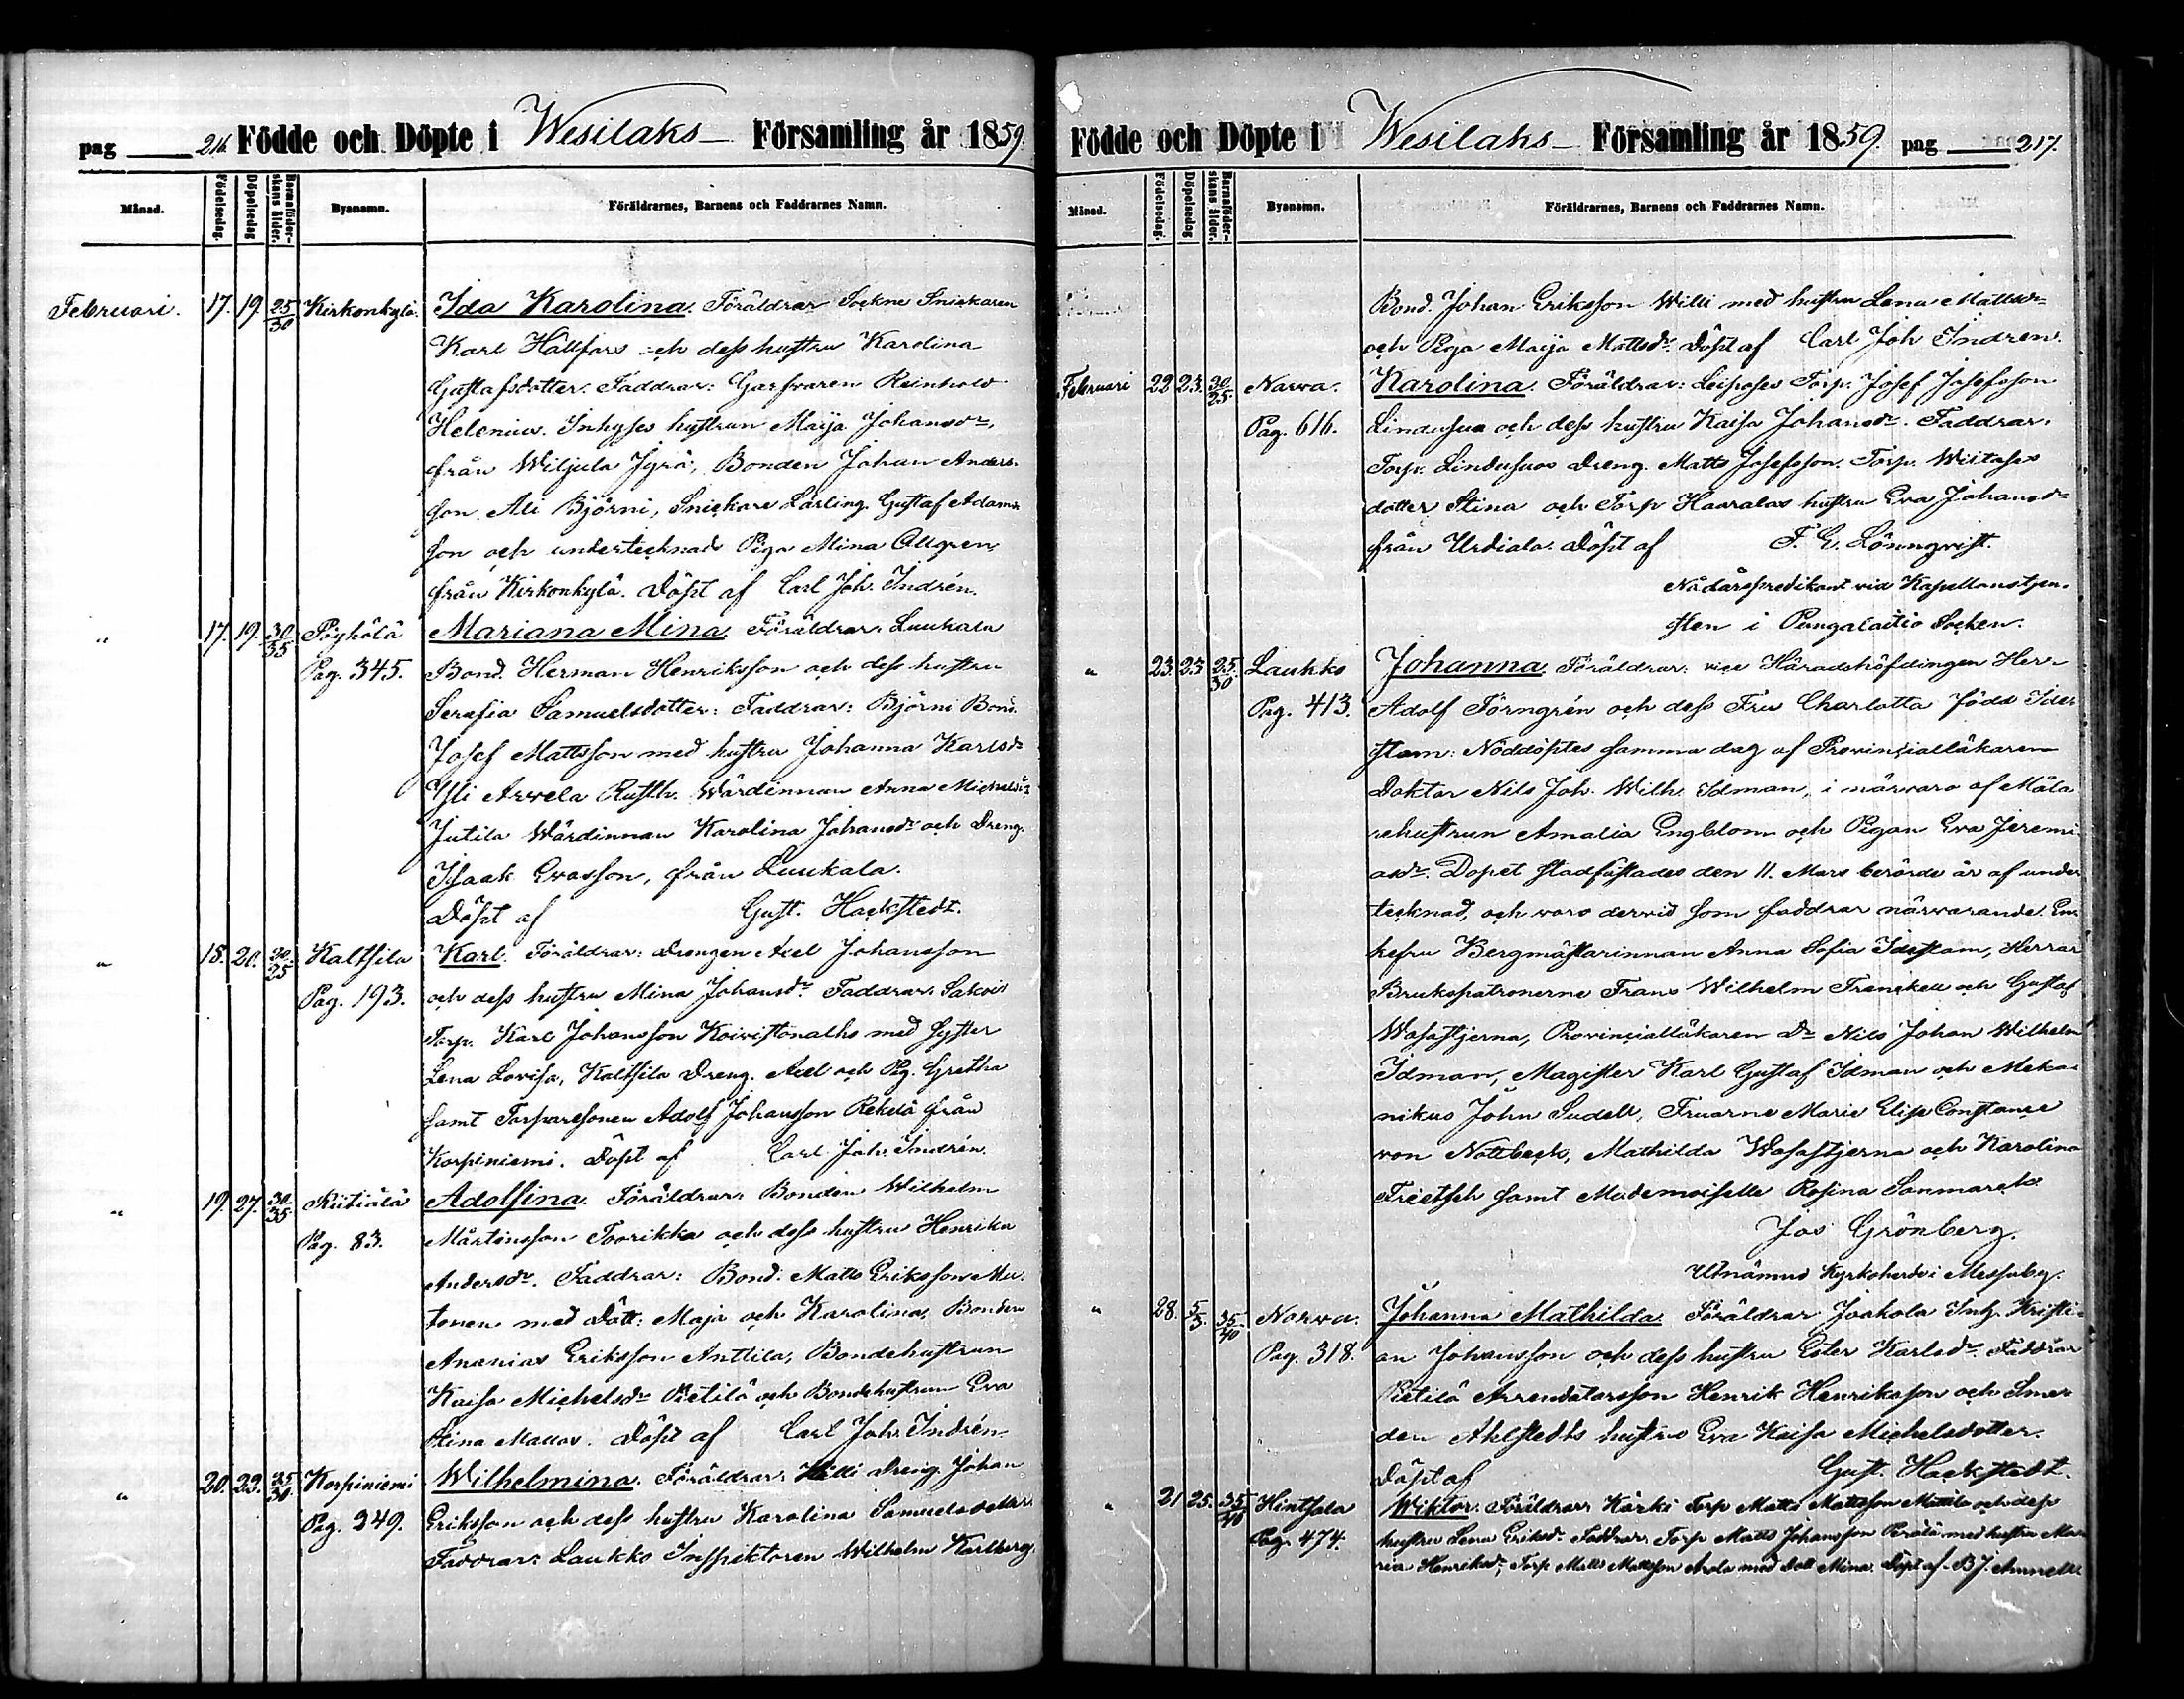 pag 216 Födde och Döpte i Wesilaks Församling år 1859.
Månad. Födelsedag. Döpelsedag Barnaföderskans ålder. Byanamn. Föräldrarnes, Barnens och Faddrarnes Namn.
Februari. 17. 19. 25/30 Kirkonkylä. Ida Karolina. Föräldrar Sockne Snickaren
Karl Hällfors och dess hustru Karolina
Gustafsdotter. Faddrar: Garfvaren Reinhold
Helenius. Inhyses hustrun Maija Johansdr,
från Wiljula Jyrä, Bonden Johan Anders-
son Ali Björni, Snickare Lärling Gustaf Adams
son och undertecknad Piga Mina Allgren
från Kirkonkylä. Döpt af Carl Joh. Indrén.
" 17. 19. 30/35 Pöyhölä Mariana Mina. Föräldrar: Luukala
Pag. 345. Bond. Herman Henriksson och dess hustru
Serafia Samuelsdotter: Faddrar: Björni Bond.
Josef Mattsson med hustru Johanna Karlsdr
Yli Arvela Rusth. Wärdinnan Anna Michelsdr
Jutila Wärdinnan Karolina Johansdr och Dreng.
Isaak Evasson, från Luukala.
Döpt af Gust. Hackstedt.
" 18. 20. 30/35 Kaltsila Karl. Föräldrar: Drengen Axel Johansson
Pag. 193. och dess hustru Mina Johansdr. Faddrar: Sakois
Torp. Karl Johansson Koivistonalho med syster
Lena Lovisa, Kaltsila Dreng. Axel och Pig. Gretha
samt Torparesonen Adolf Johansson Rekelä från
Korpiniemi. Döpt af Carl Joh. Indrén.
" 19. 27. 30/35 Kiitiälä Adolfina. Föräldrar: Bonden Wilhelm
Pag. 83. Mårtensson Toorikka och dess hustru Henrika
Andersdr. Faddrar: Bond. Matts Eriksson Mu-
tonen med Dött: Maja och Karolina, Bonden
Ananias Eriksson Anttila, Bondehustrun
Kaisa Michelsdr Pietilä och Bondehustrun Eva
Stina Mattas. Döpt af Carl Joh. Indrén.
" 20. 23. 25/30 Korpiniemi Wilhelmina. Föräldrar: Willi Dreng. Johan
Pag. 249. Eriksson och dess hustru Karolina Samuelsdotter.
Faddrar: Laukko Inspektoren Wilhelm Karlberg.
Födde och Döpte i Wesilaks Församling år 1859. pag 217.
Månad. Födelsedag. Döpelsedag Barnaföderskans ålder. Byanamn. Föräldrarnes, Barnens och Faddrarnes Namn.
Bond. Johan Eriksson Willi med hustru Lena Mattsdr
och Piga Maija Mattsdr. Döpt af Carl Joh Indren.
Februari 22 23. 30/25. Narva. Karolina. Föräldrar: Leiposes Torp. Josef Josefsson
Pag. 616. Lindusuo och dess hustru Kaisa Johansdr. Faddrar.
Torp. Lindusuos Dreng. Matts Josefsson. Torp. Wiitases
dotter Stina och Torp Haaralas hustru Eva Johansdr
från Urdiala. Döpt af F. G. Lönnqvist.
Nådårspredikant vid Kapellanstjen-
sten i Pungalaitio Socken.
" 23. 23 25/30 Laukko Johanna. Föräldrar: vice Häradshöfdingen Herr
Pag. 413. Adolf Törngrén och dess Fru Charlotta född Ide
stam: Nöddöptes samma dag af Provincialläkaren
Doktor Nils Joh. Wilh. Idman, i närvaro af Måla
rehustrun Amalia Engblom och Pigan Eva Jeremi
asdr. Dopet stadfästades den 11. Mars berörde år af under
tecknad, och voro dervid som faddrar närvarande: En-
kefru Bergmästarinnan Anna Sofia Idestam, Herrar
Brukspatronerne Frans Wilhelm Frenckell och Gustaf
Wasastjerna, Provincialläkaren Dr Nils Johan Wilhelm
Idman, Magister Karl Gustaf Idman och Meka-
nikus John Sudell, Fruarne Marie Elise Constance
von Nottbeck, Mathilda Wasastjerna och Karolina
Frietsch samt Mademoiselle Rosina Sanmark
Jos Grönberg.
Utnämnd Kyrkoherde i Messuby.
" 28. 5/3. 35/40 Narva. Johanna Mathilda. Föräldrar Jaakola Inh. Kristi-
Pag. 318. an Johansson och dess hustru Ester Karlsdr. Faddrar
Pietilä Arrendatorsson Henrik Henriksson och Sme-
den Ahlstedts hustru Eva Kaisa Michelsdotter.
Döpt af Gust. Hackstedt.
" 21 25. 35/40 Hintsala Wiktor. Föräldrar Kärki Torp Matts Mattsson Mattila och dess
Pag. 474. hustru Lena Eriksdr. Faddrar: Torp Matts Johansson Perälä med hustru Ma-
ria Henriksdr, Torp Matts Mattsson Arola med Dott Mina. Döpt af B J. Annell